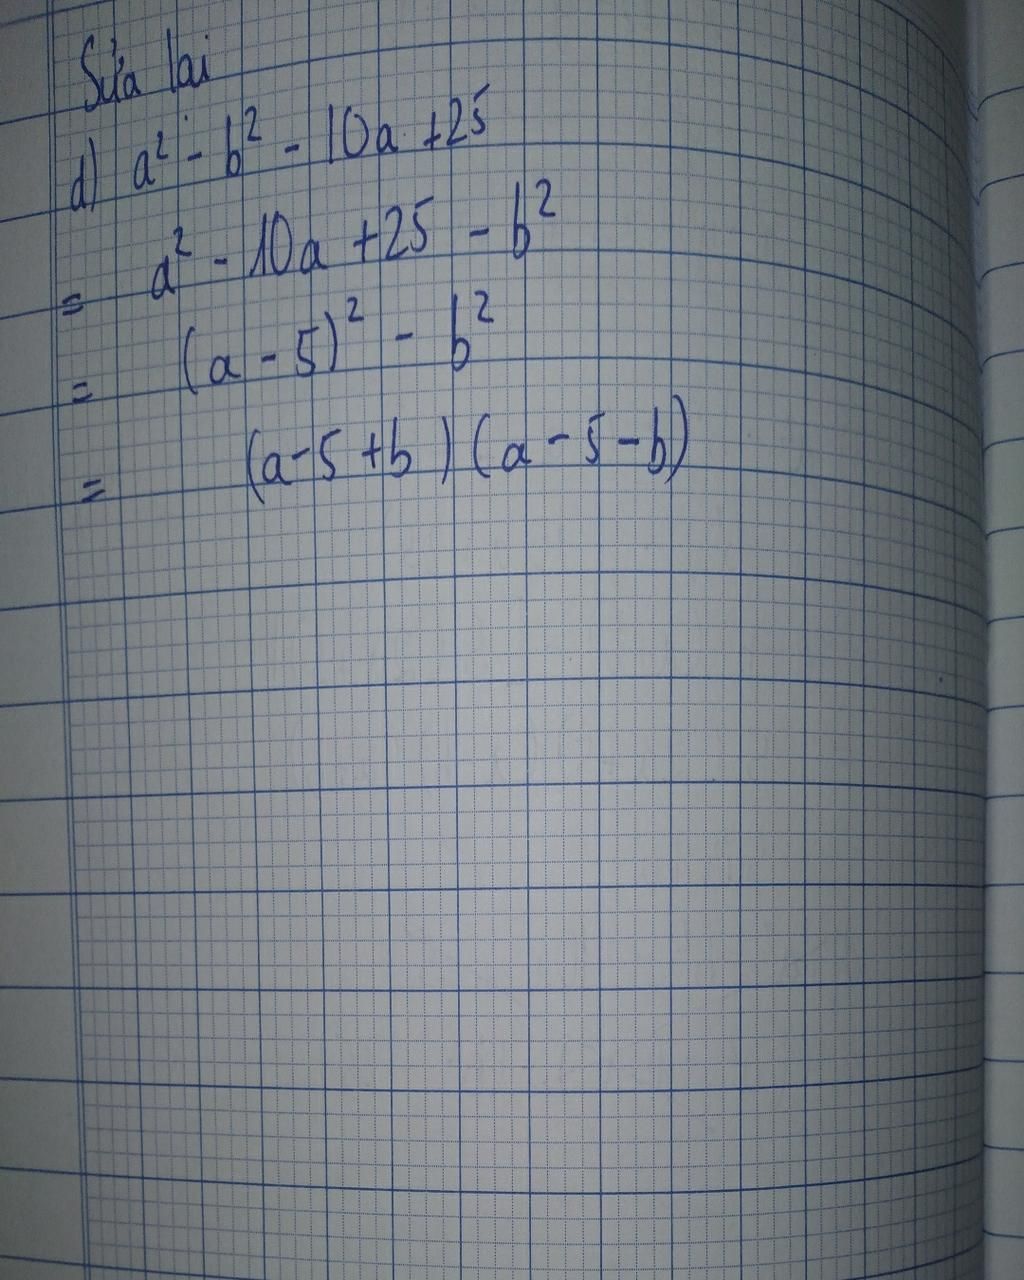 Sửa lại
d) a² - b² - 10a + 25
= a² - 10a + 25 - b²
= (a - 5)² - b²
= (a - 5 + b) (a - 5 - b)